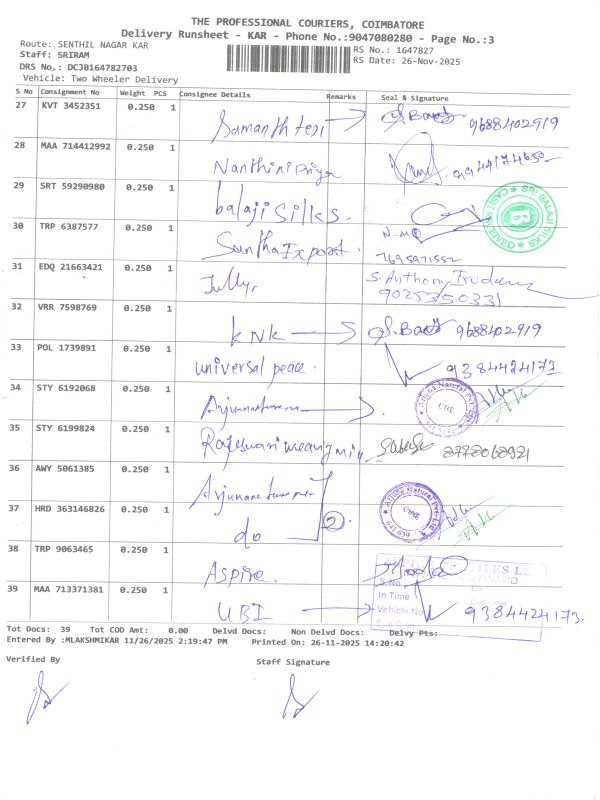 THE PROFESSIONAL COURIERS, COIMBATORE
Delivery Runsheet - KAR - Phone No.:9047080280 - Page No.:3
Route: SENTHIL NAGAR KAR
RS No.: 1647827
Staff: SRIRAM
RS Date: 26-Nov-2025
DRS No.: DCJB164782703
Vehicle: Two Wheeler Delivery
S No Consignment No Weight PCS Consignee Details Remarks Seal & Signature
27 KVT 3452351 0.250 1 9688402919
28 MAA 714412992 0.250 1 Nanthini priya
29 SRT 59290980 0.250 1 balaji Silks. SRI BALAJI SILKS
30 TRP 6387577 0.250 1 Santha Export. 7695971552
31 EDQ 21663421 0.250 1 9025350331
32 VRR 7598769 0.250 1 KNK 9688402919
33 POL 1739891 0.250 1 universal peace. 9384424173
34 STY 6192068 0.250 1
35 STY 6199824 0.250 1
36 AWY 5061385 0.250 1
37 HRD 363146826 0.250 1 do 2
38 TRP 9063465 0.250 1 Aspire.
39 MAA 713371381 0.250 1 UBI 9384424173.
S.No
In Time
Vehicle No
Tot Docs: 39 Tot COD Amt: 0.00 Delvd Docs: Non Delvd Docs: Delvy Pts:
Entered By :MLAKSHMIKAR 11/26/2025 2:19:47 PM Printed On: 26-11-2025 14:20:42
Verified By Staff Signature